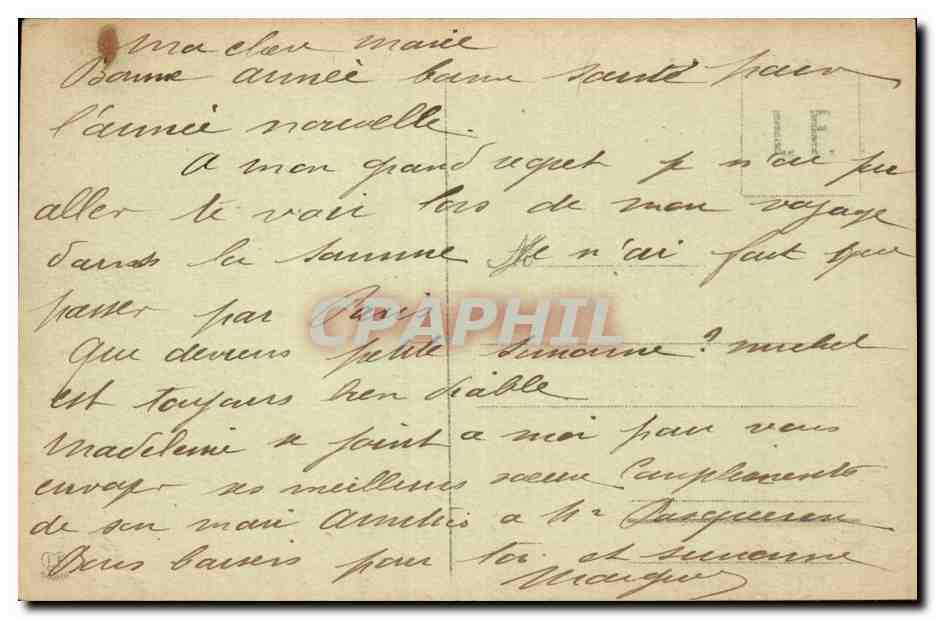 Ma cher Marie
Bonne année bonne santé pour
l'année nouvelle.
A mon grand regret je n'ai pu
aller te voir lors de mon voyage
dans la Somme Je n'ai fait que
passer par Paris
CPAPHIL
Que deviens petite Suzanne? Michel
est toujours bien diable
Madeleine se joint a moi pour vous
envoyer ses meilleurs Compliments
de son mari Amitiés a Mr
Bons baisers pour toi et Suzanne